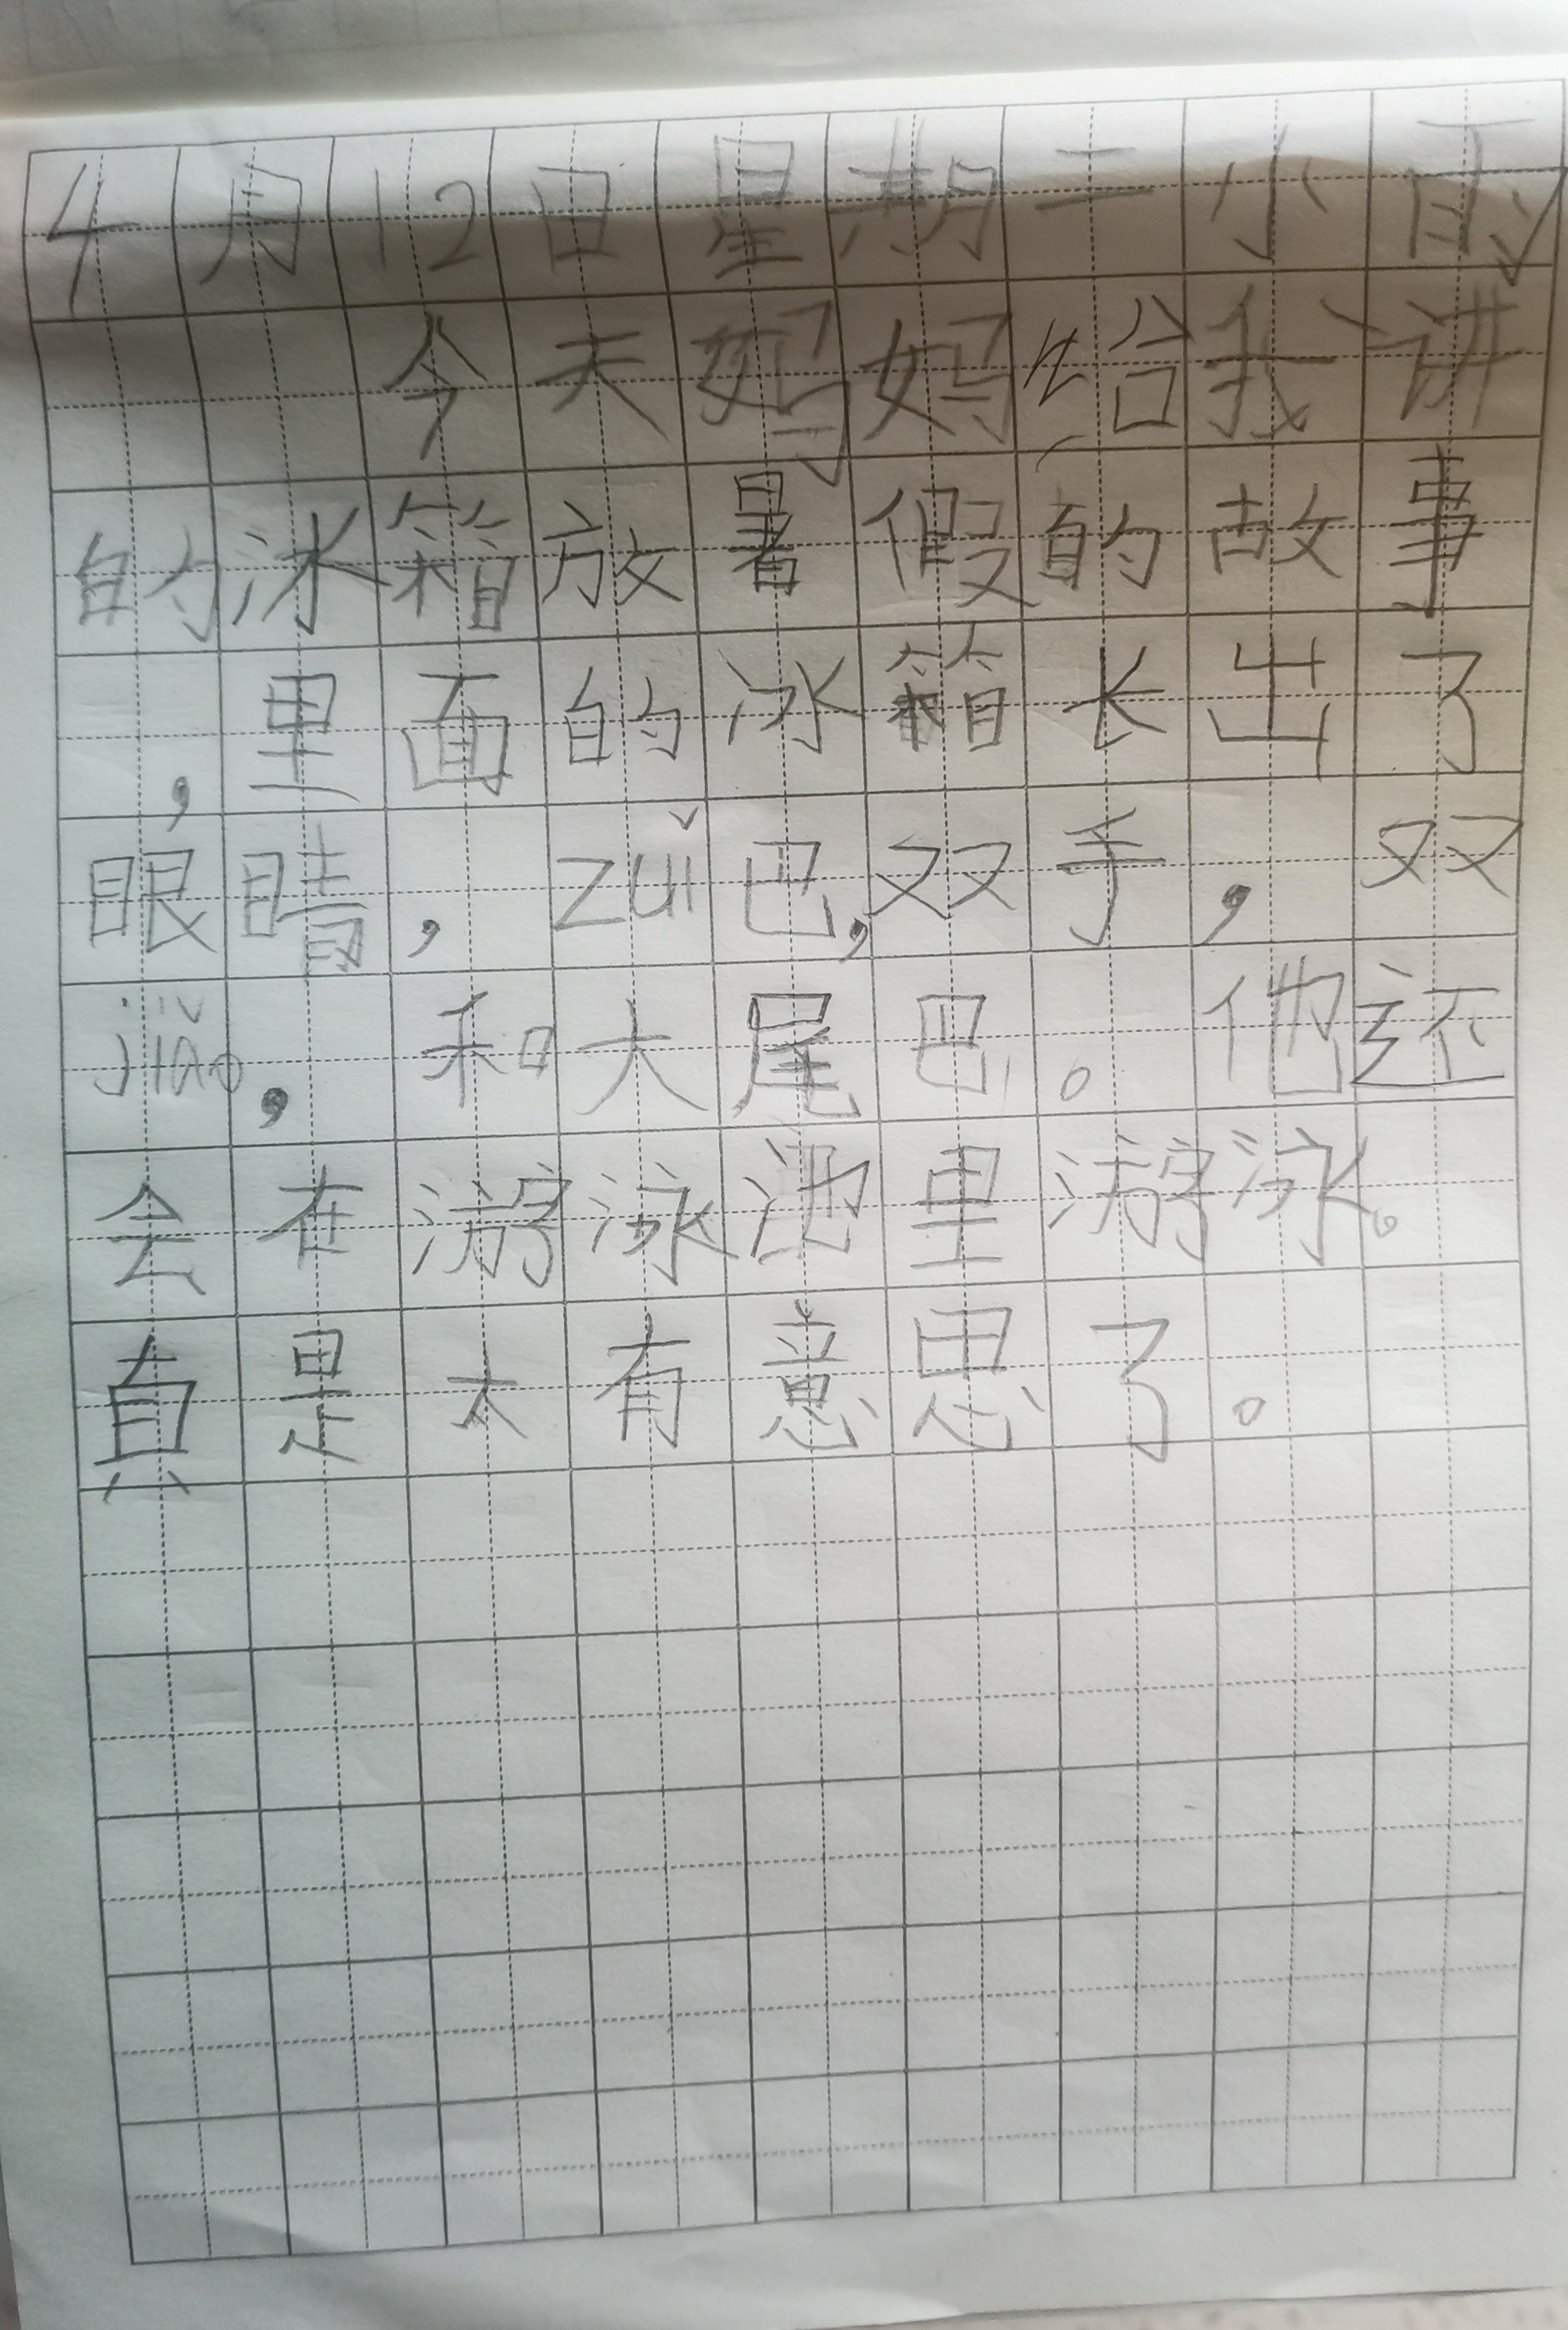 4月12日星期二小雨
今天妈妈给我讲
的冰箱放暑假的故事
，里面的冰箱长出了
眼睛，zuǐ巴，双手，双
jiǎo，和大尾巴。他还
会在游泳池里游泳。
真是太有意思了。